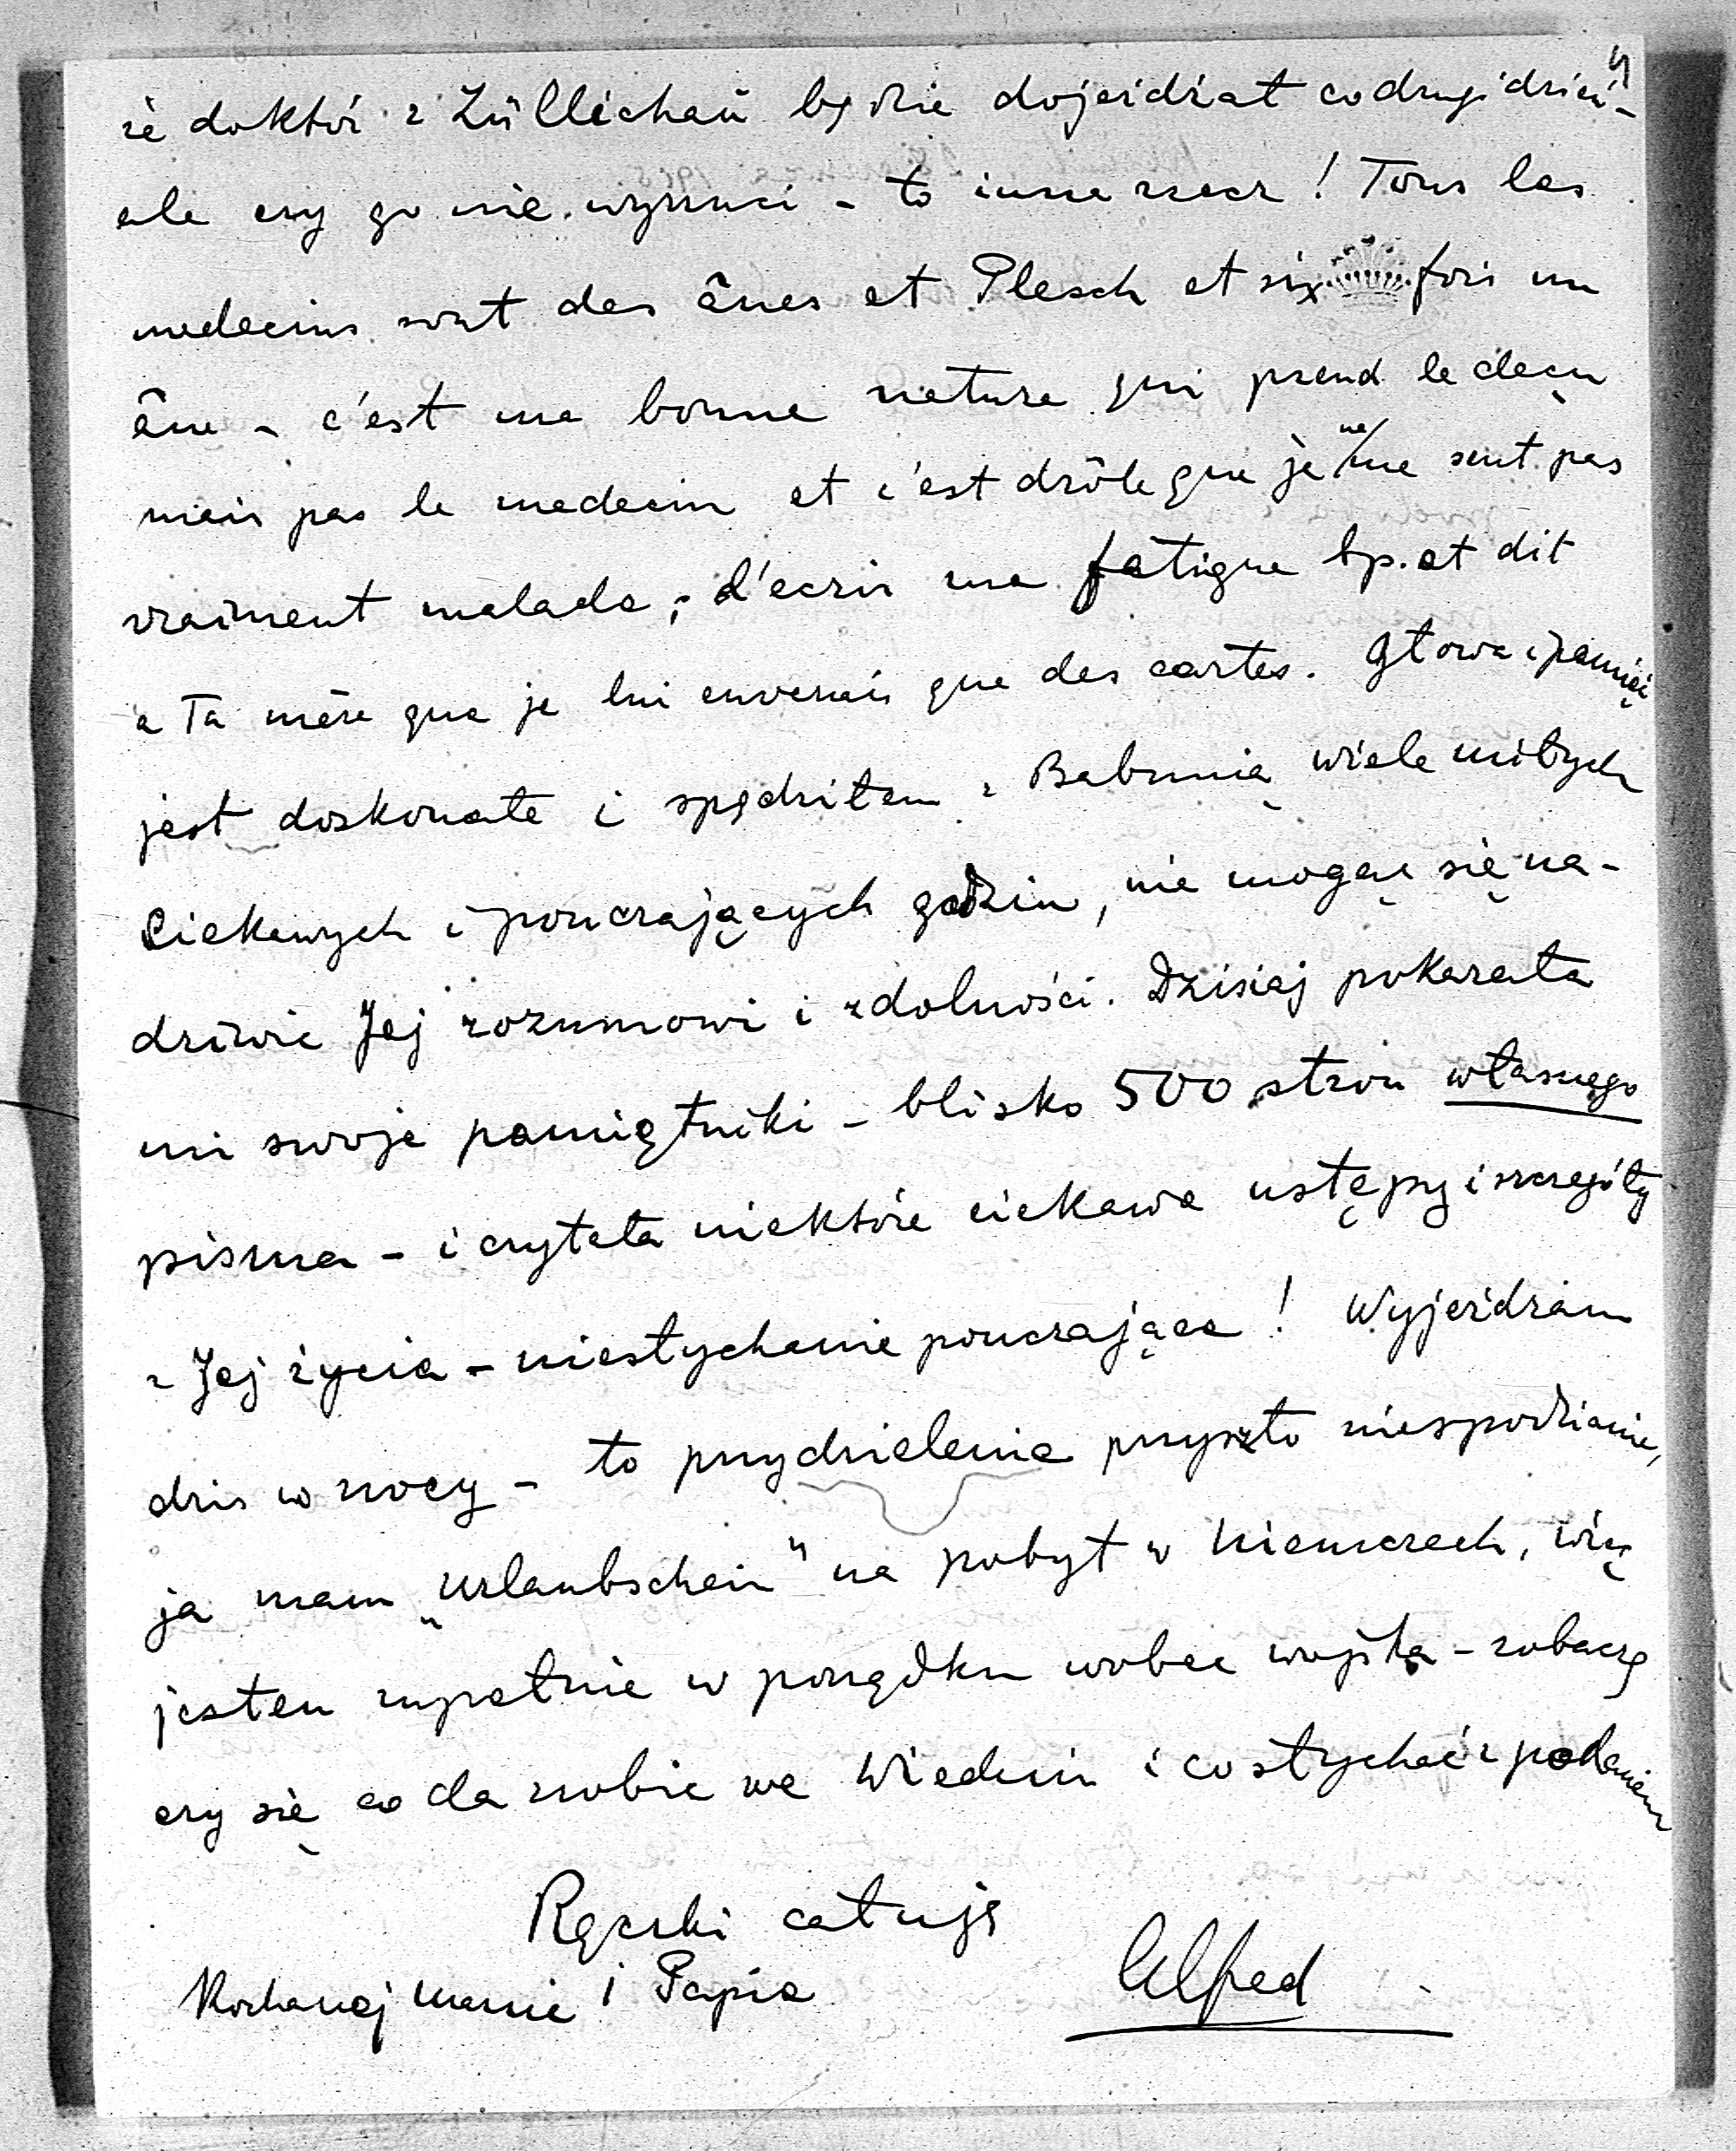 że doktór z Züllichau będzie dojeżdżał co drugi dzień"-
ale czy go nie wyrzuci - to inna rzecz! Tous les
medecins sont des ânes et Plesch et six fois un
âne - c'est ma bonne nature qui prend le deçu
mais pas le medecin et c'est drôle que je ne me sent pas
vraiment malade; d'ecrir me fatigue bp. et dit
a Ta mère que je lui enverais que des cartes. Głowa i pamięć
jest doskonałe i spędziłem z Babunią wiele miłych
ciekawych i pouczających godzin, nie mogąc się na-
dziwić Jej rozumowi i zdolności. Dzisiaj pokazała
mi swoje pamiętniki - blisko 500 stron własnego
pisma - i czytała niektóre ciekawe ustępy i szczegóły
z Jej życia - niesłychanie pouczające! Wyjeżdżam
dziś w nocy - to przydzielenie przyszło niespodzianie,
ja mam „Urlaubschein" na pobyt w Niemczech, więc
jestem zupełnie w porządku wobec wojska - zobaczę
czy się co da zrobić we Wiedniu i co słychać z podaniem
Rączki całuję
Kochanej Mamie i Papie
Alfred